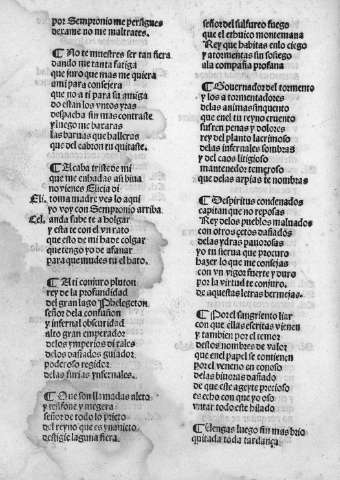 por Sempronio me persigues
dexame no me maltrates.
¶ No te muestres ser tan fiera
dando me tanta fatiga
que juro que mas me quiera
a mi para consejera
que no a ti para su amiga
do estan los vntos y ras
despacha sin mas contraste
y luego me bararas
las baruas que halleras
que del cabron tu quitaste.
¶ Acaba triste de mi
que me enbaças asi bina
no viene Elicia di
Eli. toma madre ves lo aqui
yo voy con Sempronio arriba.
Cel. anda sabe te a holgar
y esta te con el vn rato
que esto de mi ha de colgar
que tengo yo de afanar
para que mudes tu el hato.
¶ A ti conjuro pluton
rey de la profundidad
del gran lago Phelegeton
señor de la confusion
y infernal obscuridad
alto gran emperador
de los ymperios di tales
de los dañados guiador
poderoso regidor
de las furias ynfernales.
¶ Que son llamadas aleto
y tesifone y megera
señor de todo lo prieto
del reyno que es ynquieto
destigie laguna fiera.
señor del sulfureo fuego
que el ethnico monte mana
Rey que habitas en lo ciego
y atormentas sin sosiego
a la compaña profana
¶ Gouernador del tormento
y los atormentadores
de las animas sin quento
que en el tu reyno cruento
sufren penas y dolores
rey del planto lacrimoso
de las infernales sombras
y del caos litigioso
mantenedor temeroso
que de las arpias te nombras
¶ De spiritus condenados
capitan que no reposas
Rey de los pueblos maluados
con otros cetos dañados
de las ydras pauorosas
yo tu sierua que procuro
hazer lo que me consejas
con vn vigor fuerte y duro
por la virtud te conjuro.
de aquestas letras bermejas.
¶ Por el sangriento liar
con que ellas escritas vienen
y tambien por el temor
destos nombres de valor
que en el papel se contienen
por el veneno en conoso
de las biuoras dañado
de que este azeyte precioso
es echo con que yo oso
vntar todo este hilado
¶ Uengas luego sin mas brio
quitada toda tardança,